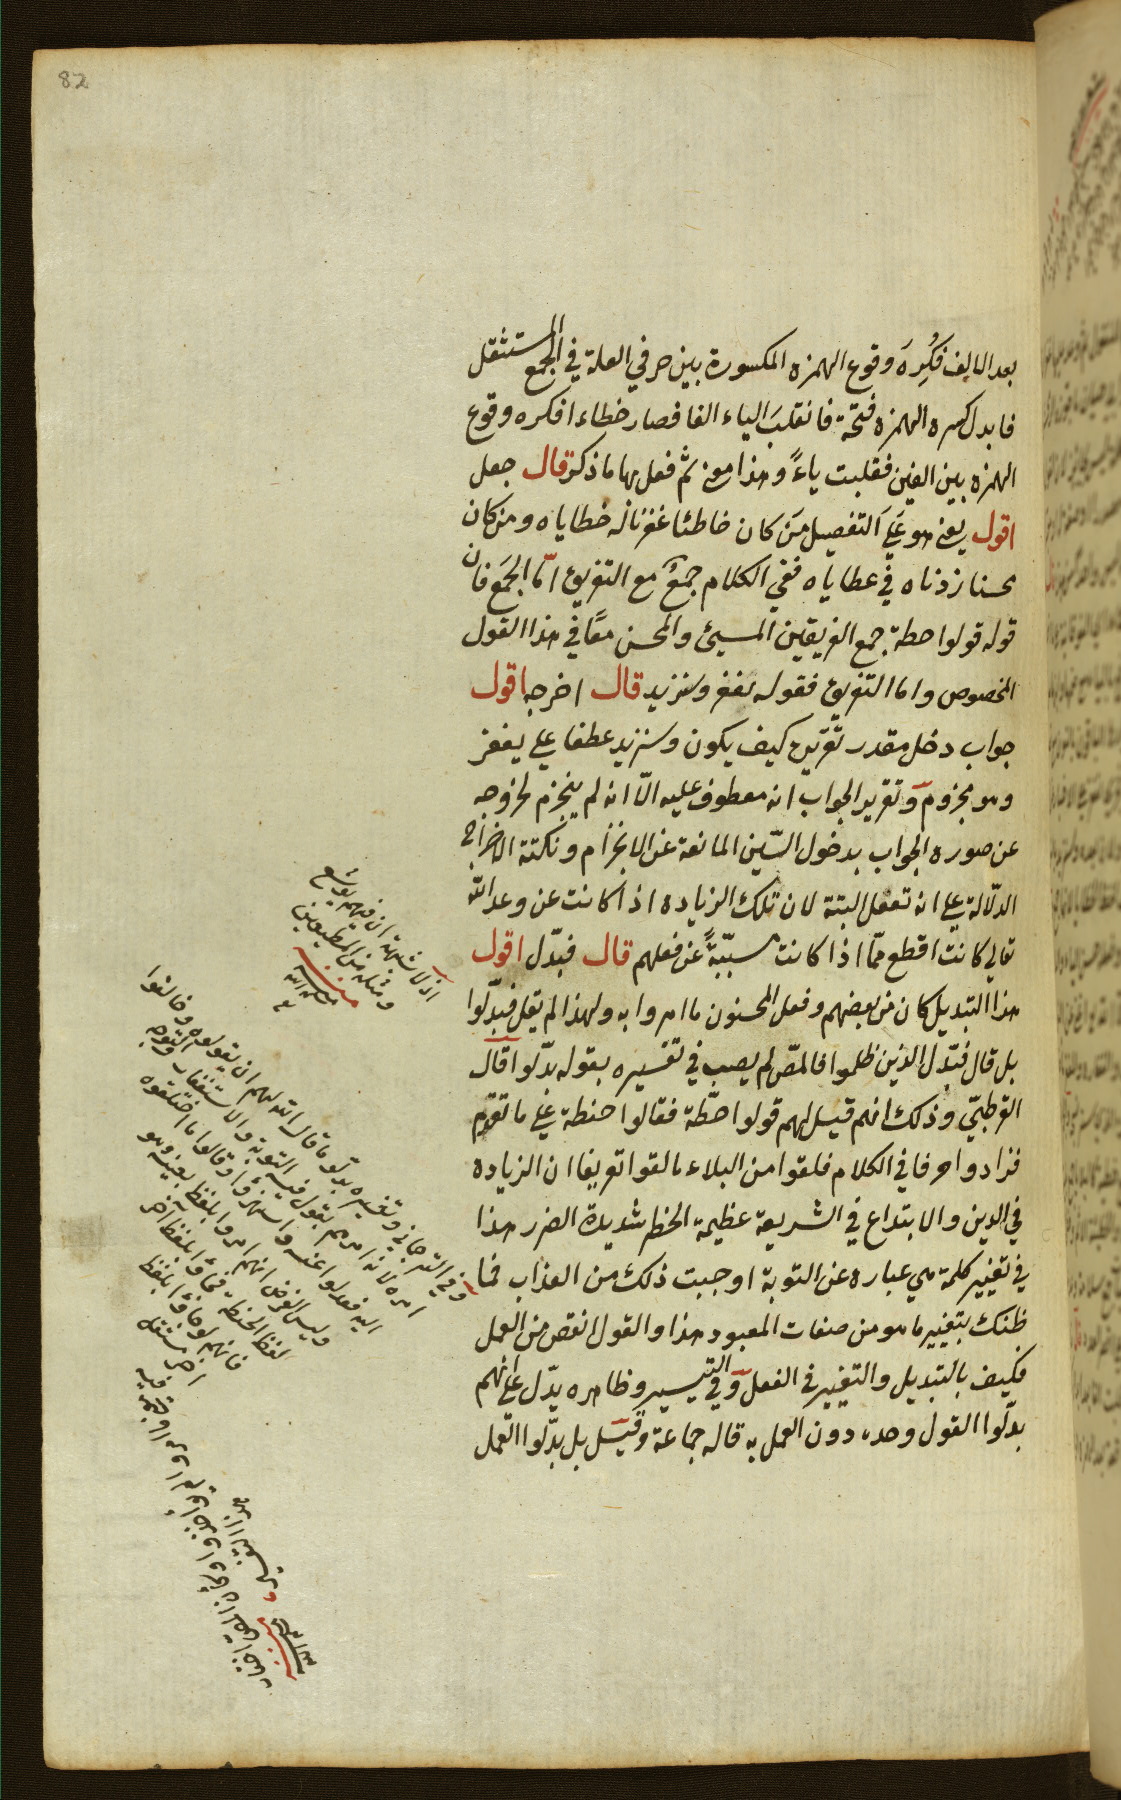 82
بعد الالف فكُرِهَ وقوع الهمزه المكسورة بين حرفي العلة في الجمع المستثقل
فابدل كسره الهمزه فتحة فانقلبَ الياء الفا فصار خطاءا فكره وقوع
الهمزه بين الفين فقلبت ياءً وهذا
ثم فعل بها ما ذكر قال جعل
اقول يعنى هو على التفصيل مَن كان خاطئا غفرنا له خطاياه ومن كان
محسنا زدناه في عطاياه ففي الكلام جمعٌ مع التفريق امّا الجمع فان
قوله قولوا حطة جمع الفريقين المسيئ والمحسن معًا في هذا القول
المخصوص واما التفريق فقوله نغفر وسنزيد قال اخرجه اقول
جواب دخل مقدر تقريره كيف يكون وسنزيد عطفا على يغفر
وهو مجزوم وتقرير الجواب انه معطوف عليه الّا انه لم ينجزم لخروجه
عن صوره الجواب بدخول السّين المانعة عن الانجزام ونكتة الاخراج
الدّلالة على انه تفعل البتة لان تلك الزياده اذا كانت عن وعد الله
تعالى كانت اقطع ممّا اذا كانت مسببّةً عن فعلهم قال فبدّل اقول
هذا التبديل كان من بعضهم وفعل المحسنون ما امروا به ولهذا لم يقل فبدّلوا
بل قال فبدّل الذين ظلموا فالمصّ لم يصب في تفسيره بقوله بدّلوا قال
القرطبيّ وذلك انهم قيل لهم قولوا حطّة فقالوا حنطة على ما تقدم
فزادوا حرفا في الكلام فلقوا من البلاء ما لقوا تعريفا ان الزياده
في الدين والابتداع في الشريعة عظيمة الخطر شديدة الضرر هذا
في تغيير كلمة هي عباره عن التوبة اوجبت ذلك من العذاب فما
ظنك بتغيير ما هو من صفات المعبود هذا والقول انقص من العمل
فكيف بالتبديل والتغيير في الفعل وفي التيسير وظاهره يدّل على انهم
بدّلوا القول وحده دون العمل به قاله جماعة وقيل بل بدّلوا العمل
اذ لا شبهة ان فيهم يوشع
ومثله من المطيعين
منه
وتفسيره بدّلوا ما قال الله لهم ان يقولوه وقالوا
امره لانه امرهم بقول فيه التوبة والاستغفار والتوجه
اليه فعدلوا عنه واستهزؤا وقالوا ما اختلقوه
وليس الغرض انهم امروا بلفظ بعينه وهو
لفظ الحنطة فجاؤا بلفظ آخر
فانهم لو جاؤا بلفظ
اخر مستقل